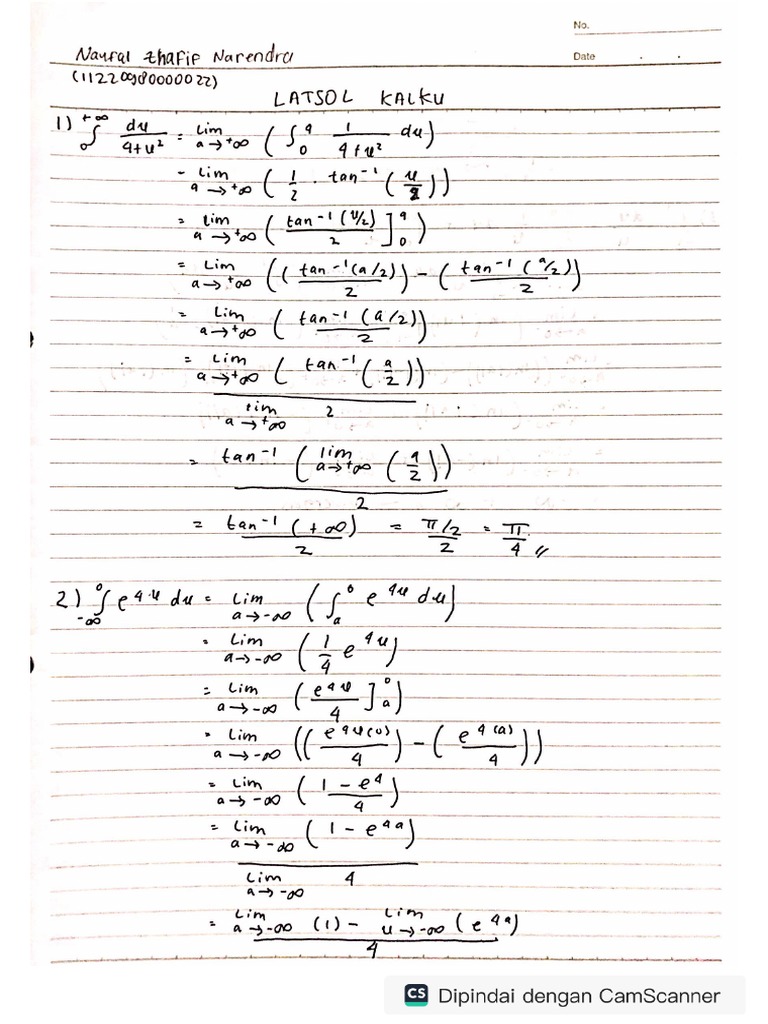 No.
Date
Naufal Zhafif Narendra
(11220980000022)
LATSOL KALKU
1) ∫₀^{+∞} du/(4+u²) = lim a→+∞ (∫₀^a 1/(4+u²) du)
= lim a→+∞ (1/2 · tan⁻¹(u/2))
= lim a→+∞ (tan⁻¹(u/2)/2 ]₀^a)
= lim a→+∞ ((tan⁻¹(a/2)/2) - (tan⁻¹(0/2)/2))
= lim a→+∞ (tan⁻¹(a/2)/2)
= lim a→+∞ (tan⁻¹(a/2)) / lim a→+∞ 2
= tan⁻¹(lim a→+∞ (a/2)) / 2
= tan⁻¹(+∞)/2 = π/2/2 = π/4 //
2) ∫_{-∞}^0 e^{4u} du = lim a→-∞ (∫_a^0 e^{4u} du)
= lim a→-∞ (1/4 e^{4u})
= lim a→-∞ (e^{4u}/4 ]_a^0)
= lim a→-∞ ((e^{4u(0)}/4) - (e^{4(a)}/4))
= lim a→-∞ (1 - e^4/4)
= lim a→-∞ (1 - e^{4a}) / lim a→-∞ 4
= lim a→-∞ (1) - lim u→-∞ (e^{4a}) / 4
CS Dipindai dengan CamScanner